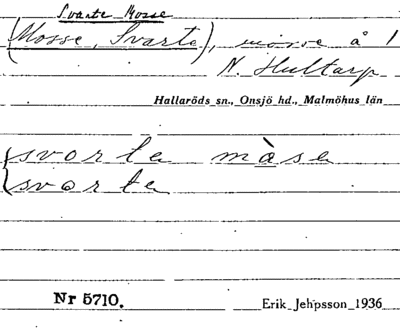 Svarte Mosse
(Mosse, Svarte), mosse å 1
N. Hultarp
Hallaröds sn., Onsjö hd., Malmöhus län
svorte màse
svorte
Nr 5710.
Erik Jeppsson 1936